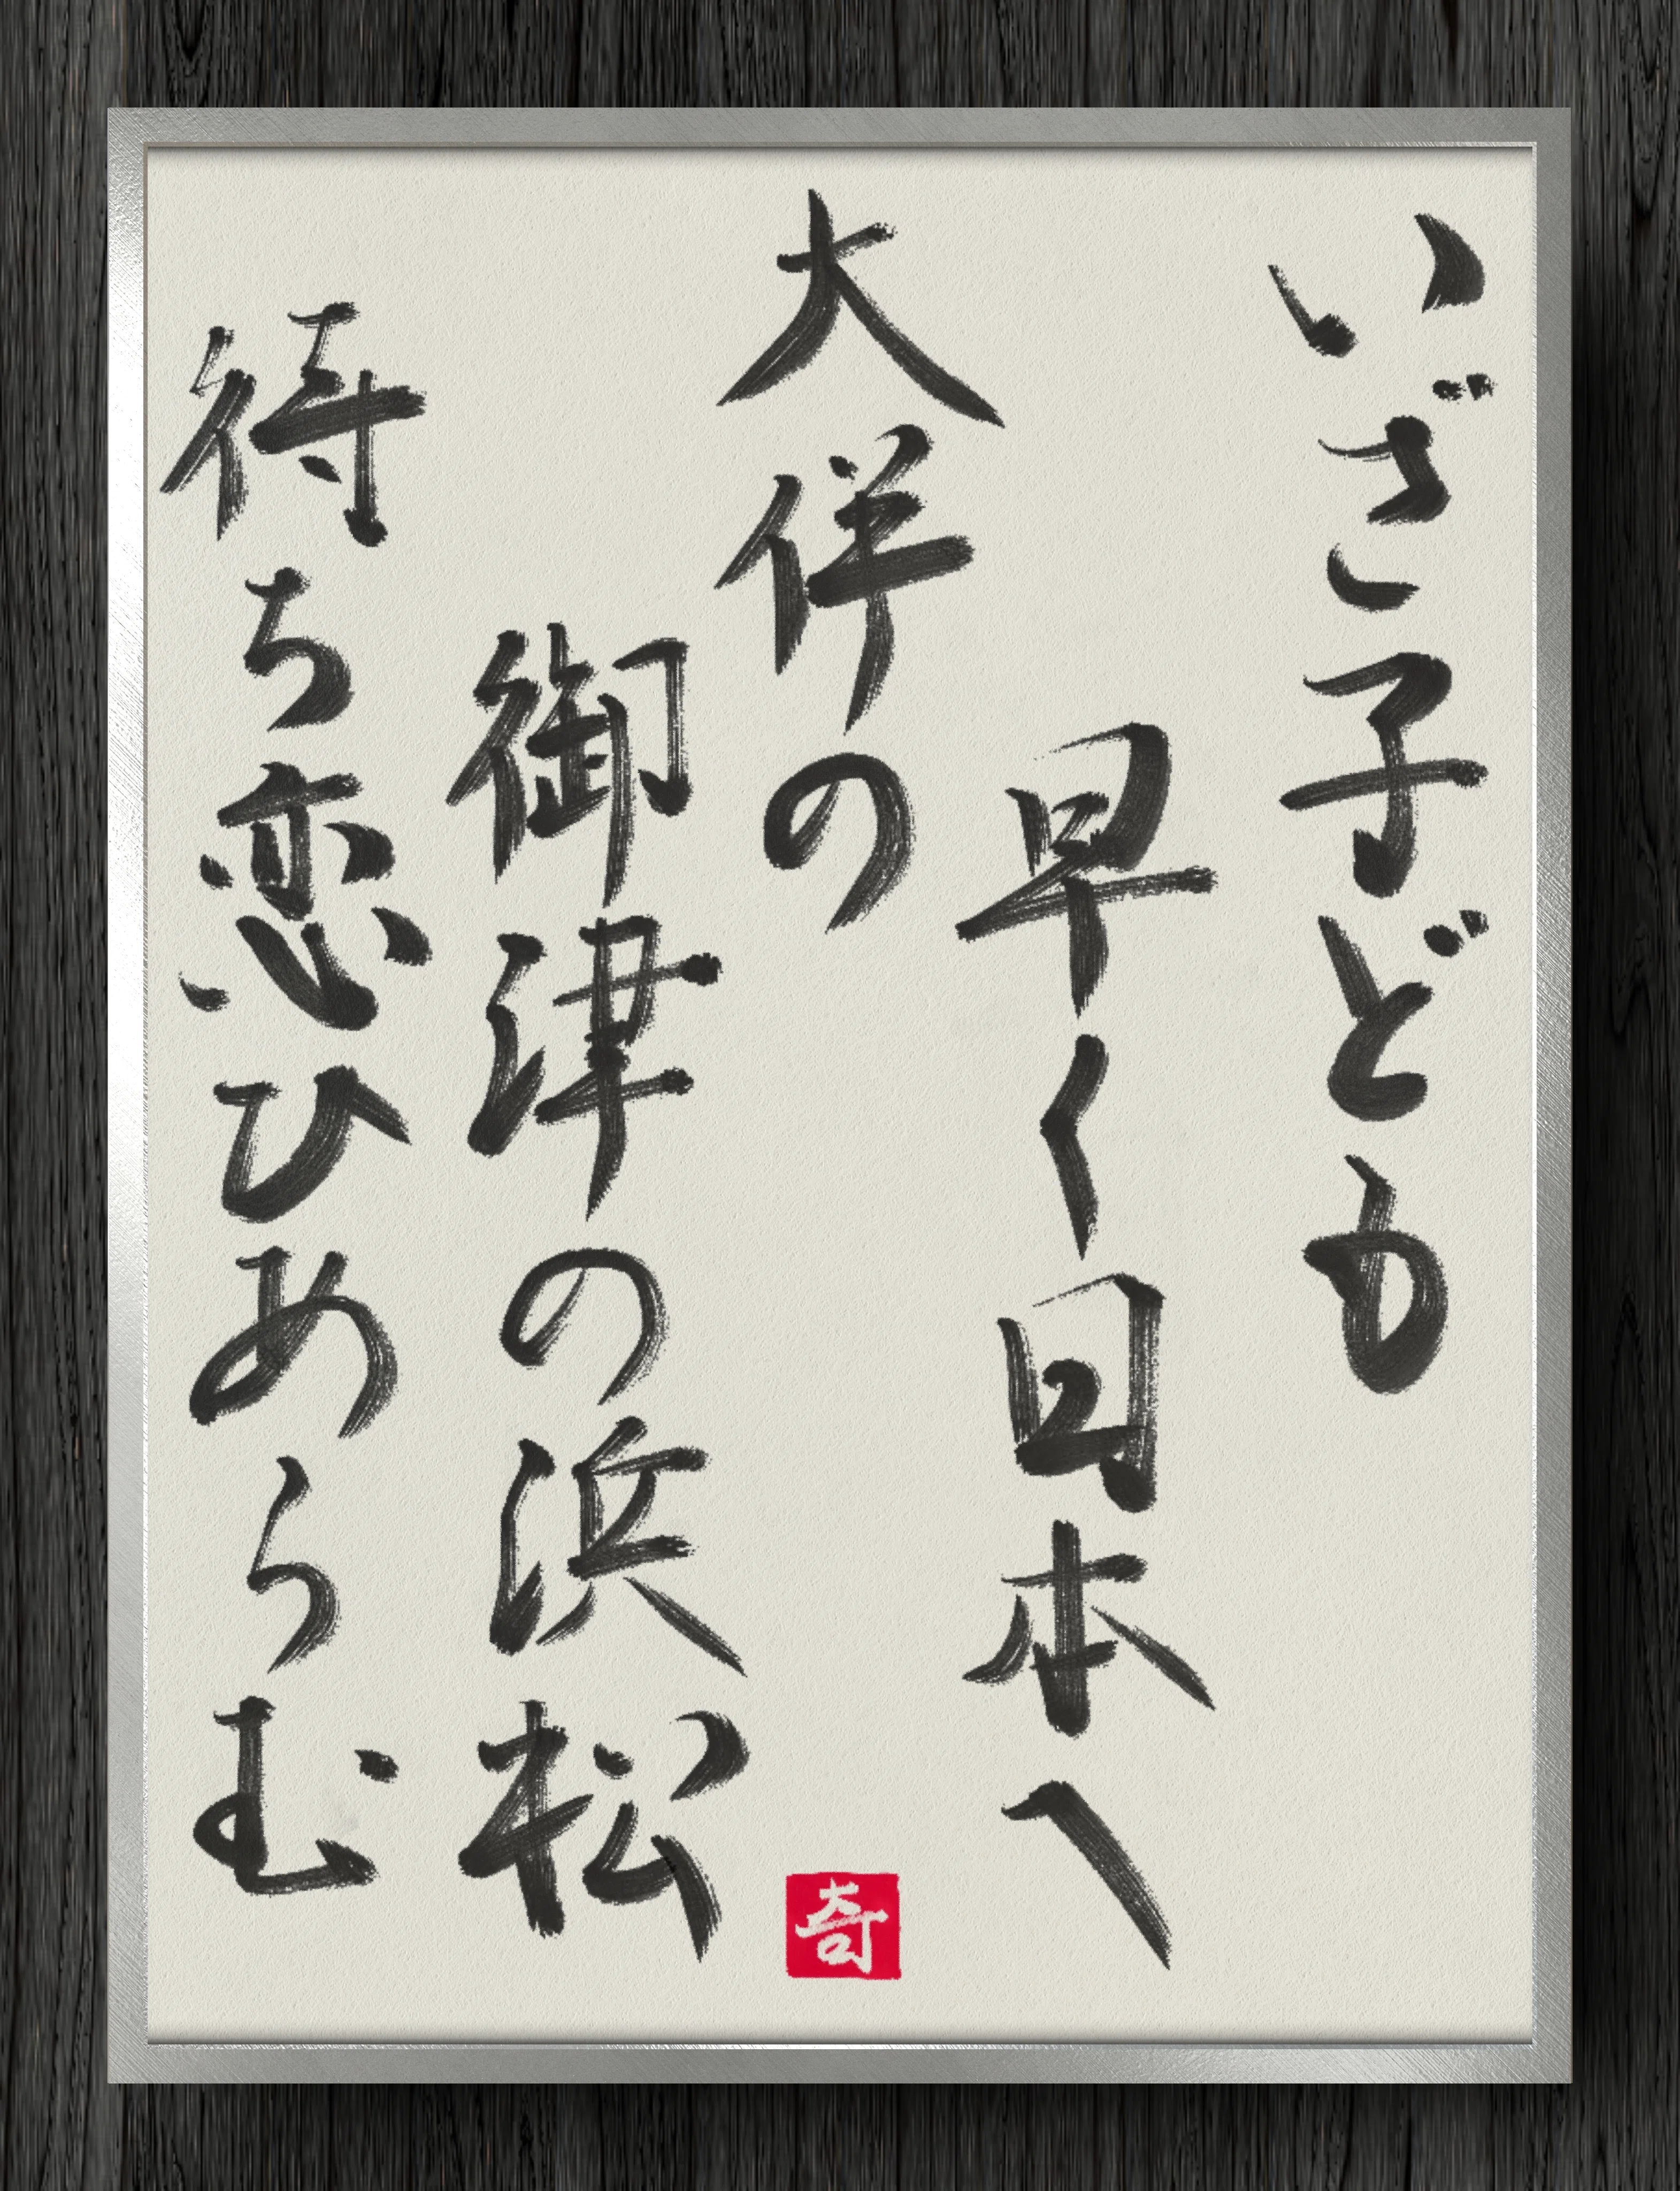 いざ子ども
早く日本へ
大伴の
御津の浜松
待ち恋ひあらむ
奇